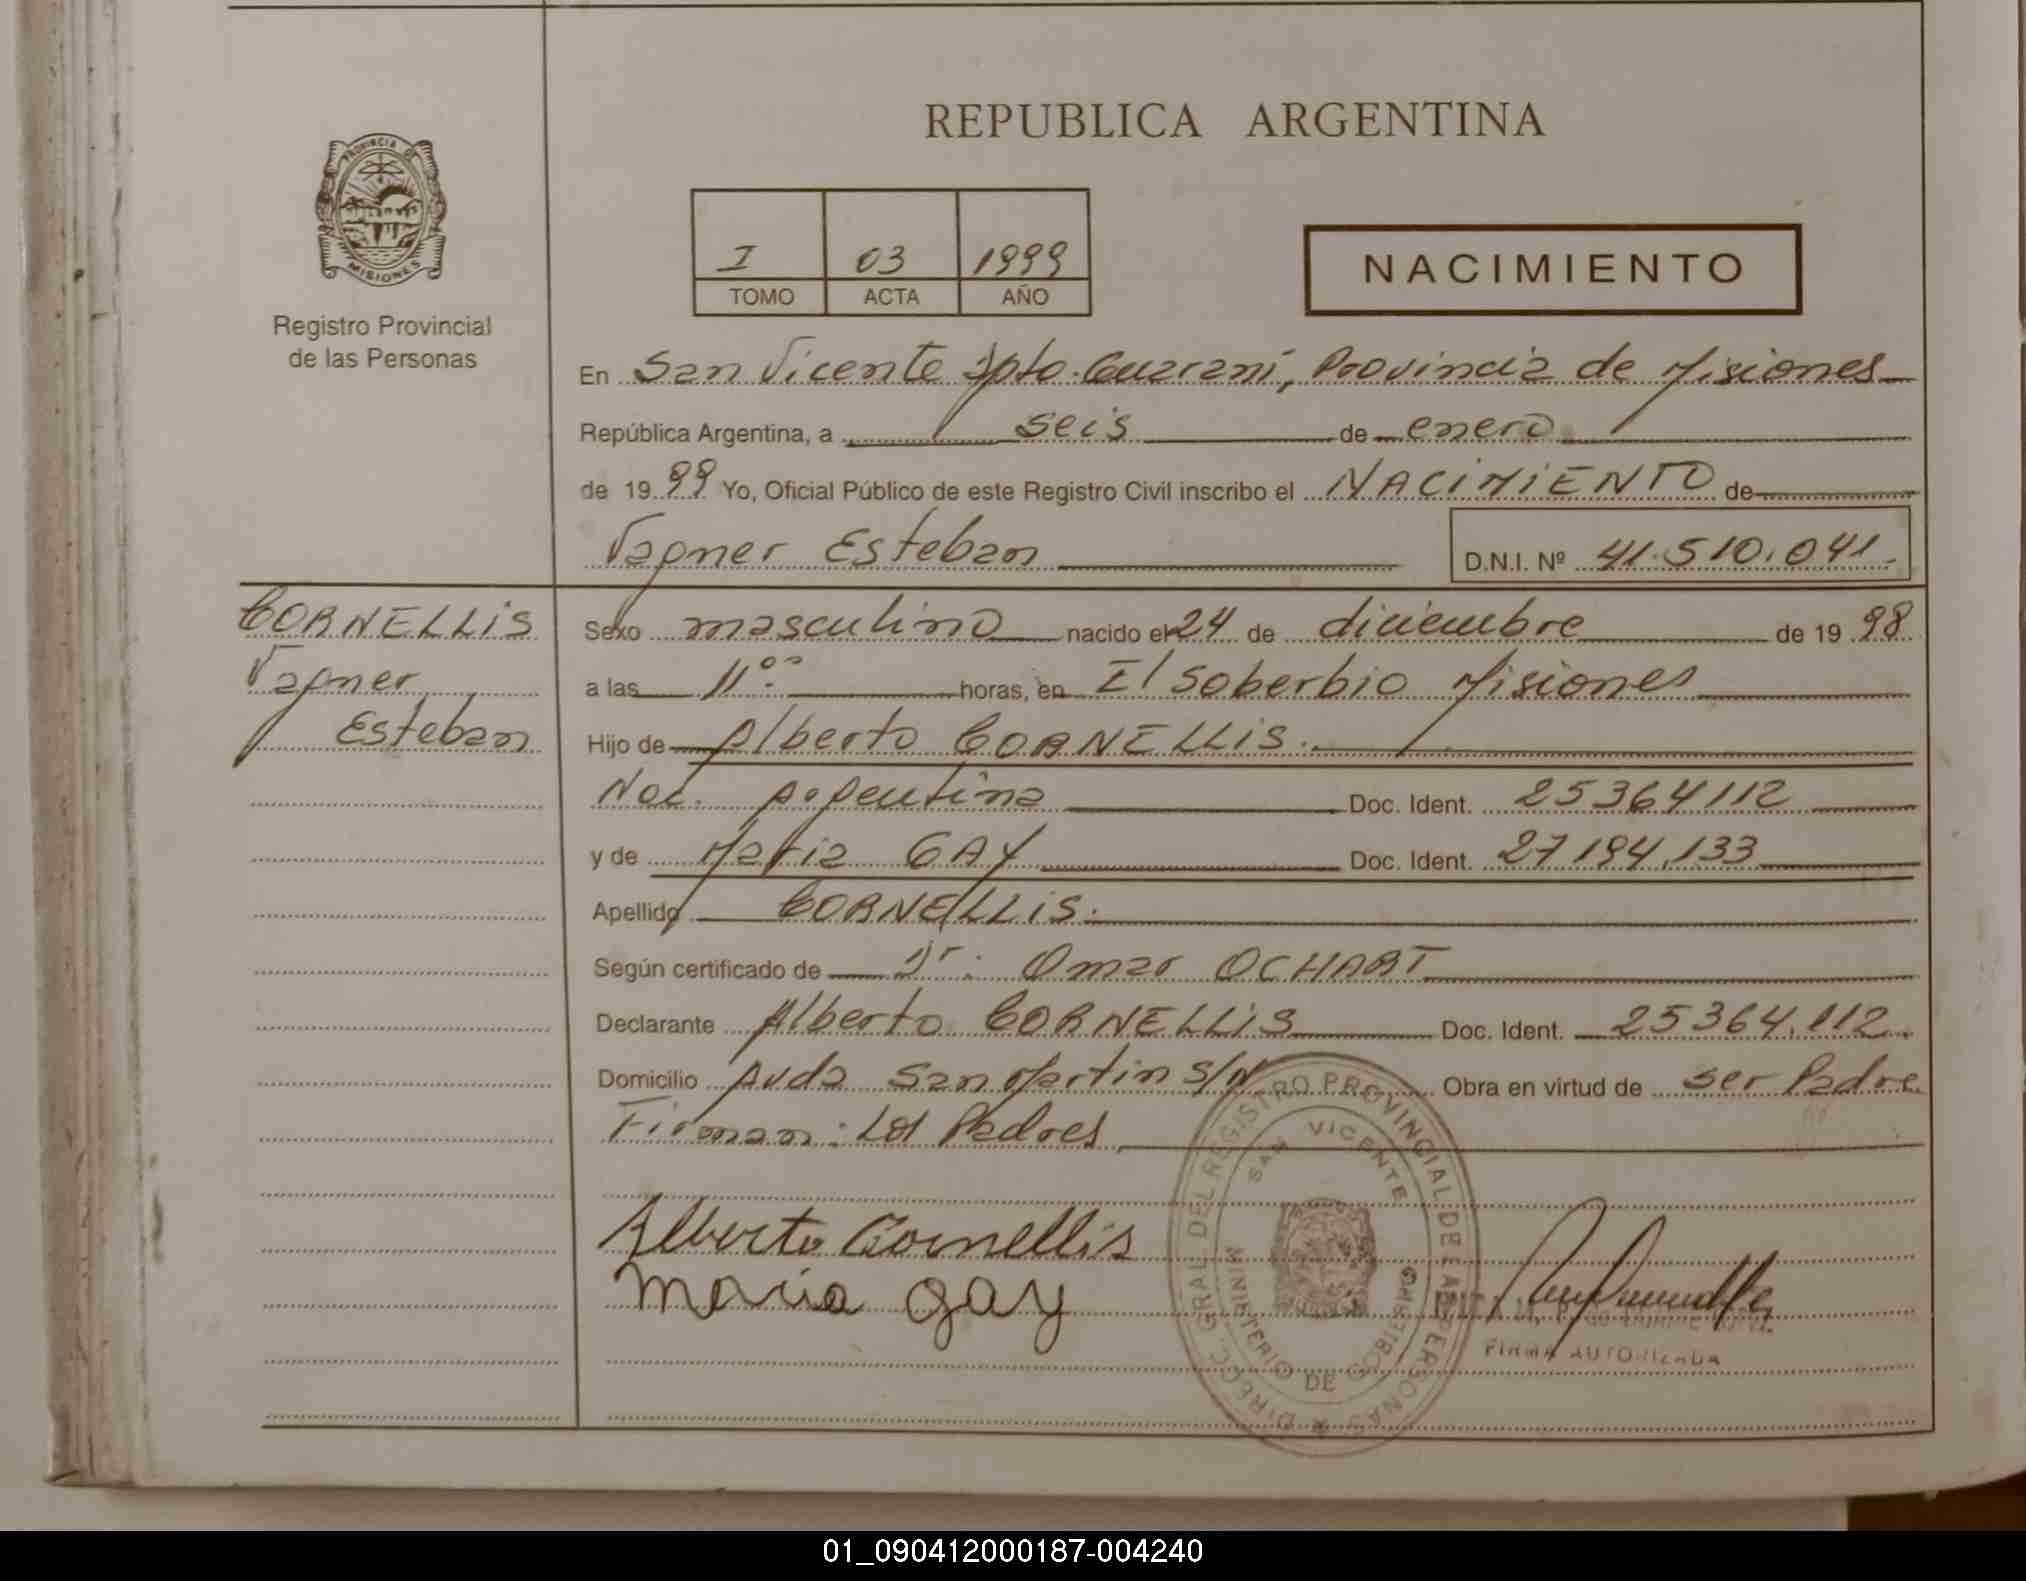 PROVINCIA DE
MISIONES
Registro Provincial
de las Personas
REPUBLICA ARGENTINA
I 03 1999
TOMO ACTA AÑO
NACIMIENTO
En San Vicente Dpto. Guaraní, Provincia de Misiones
República Argentina, a seis de enero
de 1999 Yo, Oficial Público de este Registro Civil inscribo el NACIMIENTO de
Vagner Esteban D.N.I. Nº 41.510.041.
CORNELLIS
Vagner
Esteban
Sexo masculino nacido el 24 de diciembre de 1998
a las 11:00 horas, en El Soberbio Misiones
Hijo de Alberto CORNELLIS.
Nac. Argentina Doc. Ident. 25364112
y de Maria GAY Doc. Ident. 27194.133
Apellido CORNELLIS.
Según certificado de Dr. Omar OCHART
Declarante Alberto CORNELLIS Doc. Ident. 25364.112.
Domicilio Avda San Martin S/N Obra en virtud de ser Padre
Firman: Los Padres
Alberto Cornellis
maria gay
DIRECC. GRAL. DEL REGISTRO PROVINCIAL DE LAS PERSONAS
SAN VICENTE
MINISTERIO DE GOBIERNO
FIRMA AUTORIZADA
01_090412000187-004240